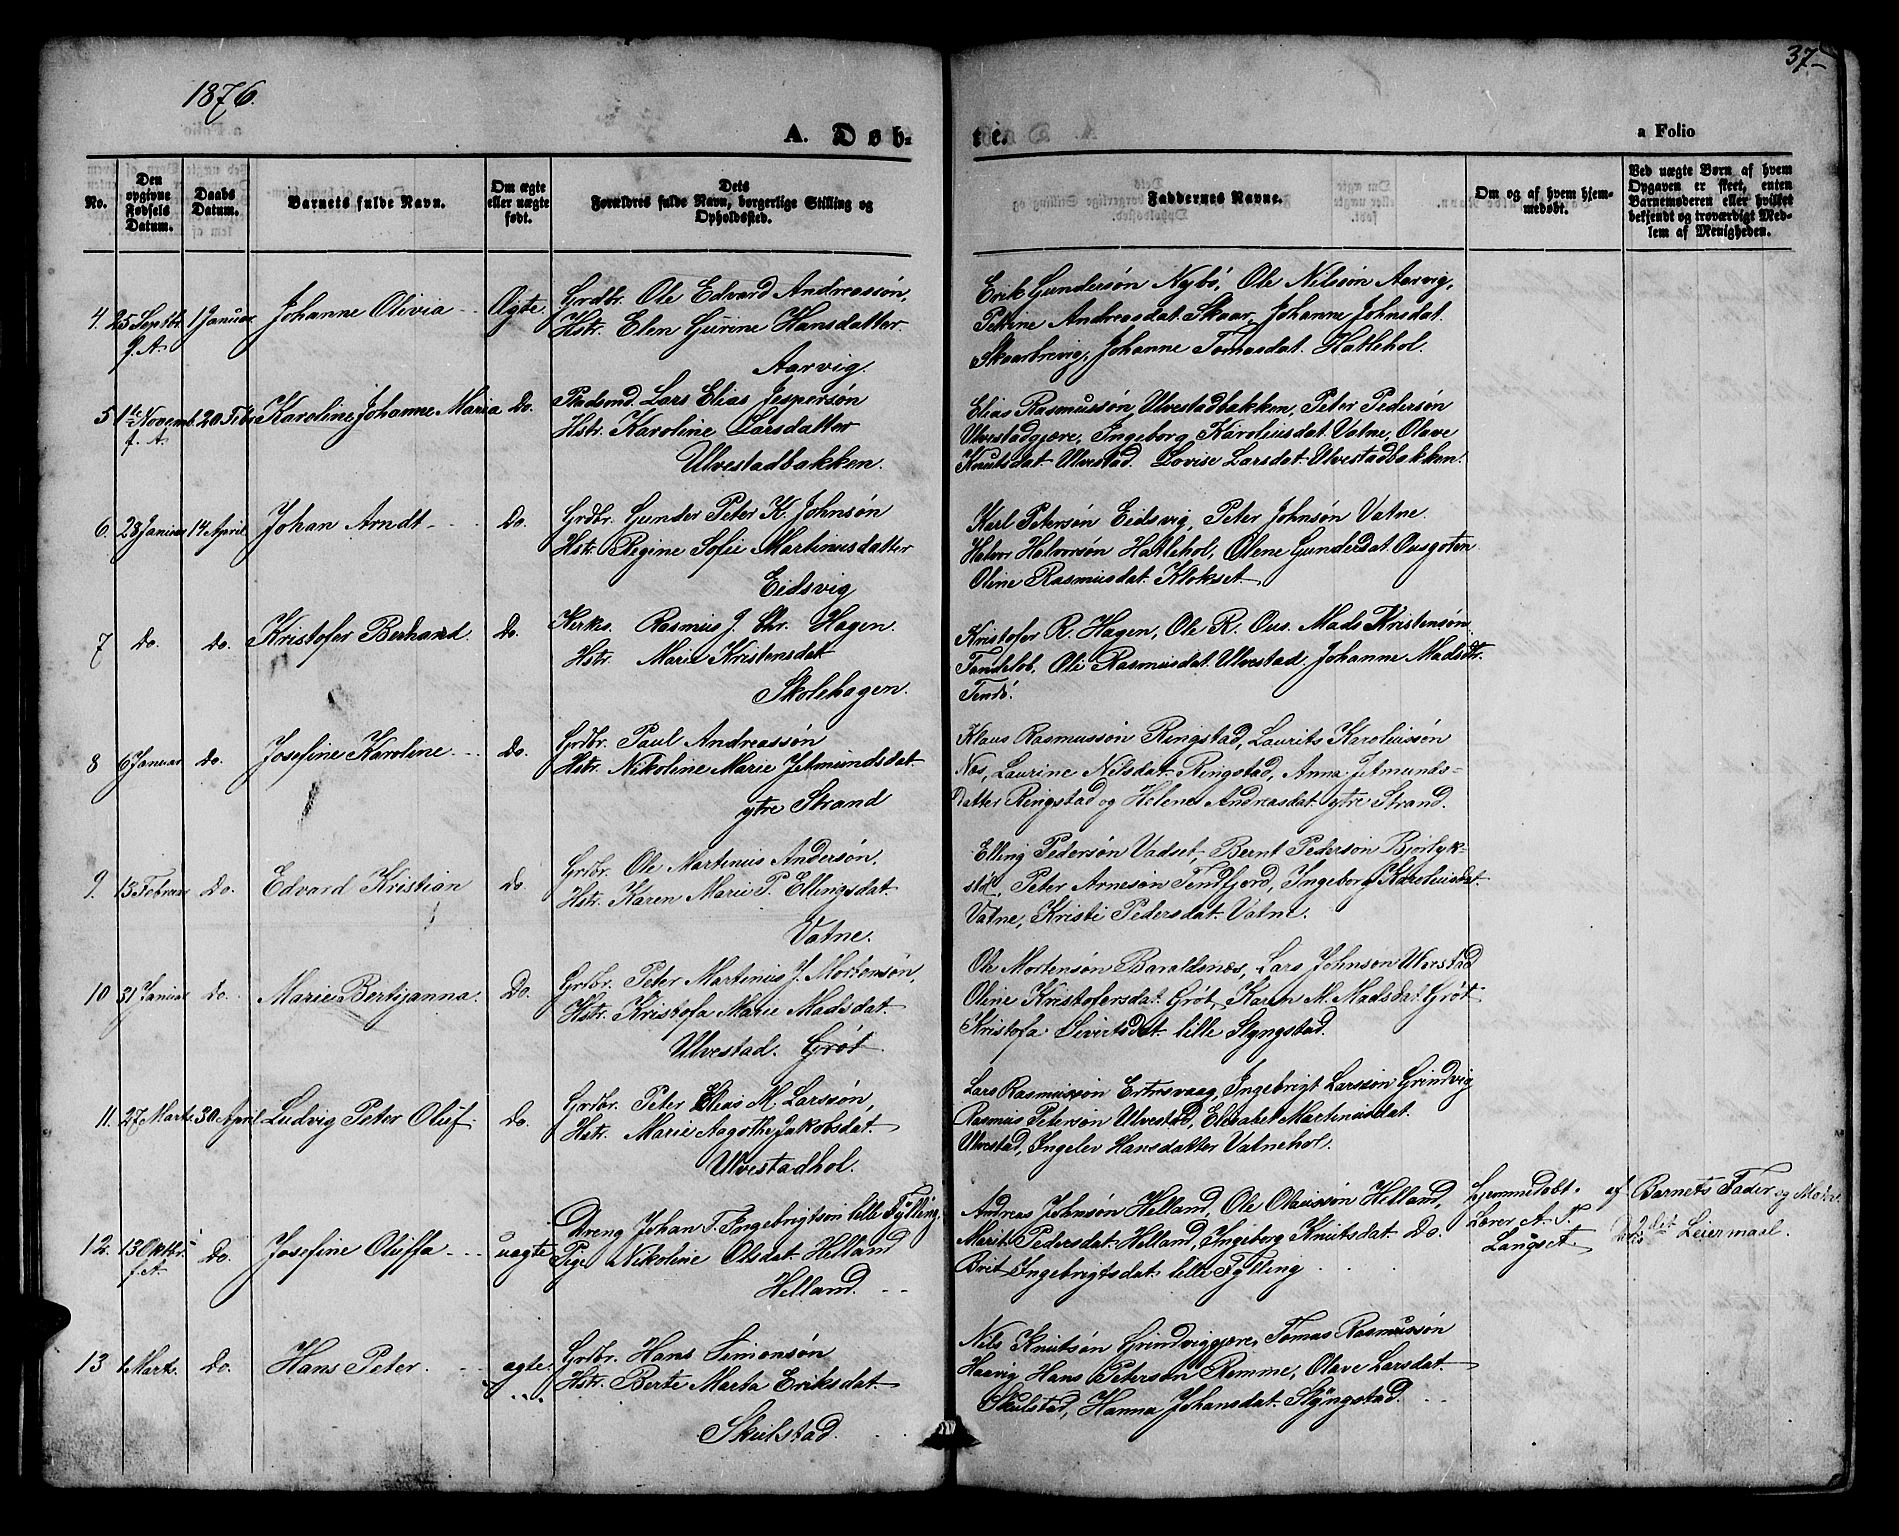 1876.
37
A. Døb-
te.
a Folio
No.
Den opgivne Fødsels Datum.
Daabs Datum.
Barnets fulde Navn.
Om ægte eller uægte født.
Dets Forældres fulde Navn, borgerlige Stilling og Opholdssted.
Faddernes Navne.
Om og af hvem hjemmedøbt.
Ved uægte Børn af hvem Opgaven er skeet, enten Barnemoderen eller hvilket bekjendt og troværdigt Medlem af Menigheden.
4. 25 Septbr. f. A. 1 Januar Johanne Olivia Ægte.
Grdbr. Ole Edvard Andreassøn,
Hstr. Elen Gurine Hansdatter
Aarvig.
Erik Gundersøn Nybø, Ole Nilssøn Aarvig,
Petrine Andreasdat. Skaar, Johanne Johnsdat.
Skaarbrevig, Johanne Tomasdat. Hatlehol.
5 1ste Novemb. f. A. 20. Febr. Karoline Johanne Maria Do.
Pladsmd. Lars Elias Jespersøn
Hstr. Karoline Larsdatter
Ulvestadbakken.
Elias Rasmussøn, Ulvestadbakken, Peter Pedersøn
Ulvestadgjære, Ingeborg Karoliusdat. Vatne, Olave
Knutsdat Ulvestad. Lovise Larsdat. Ulvestadbakken.
6. 28 Januar 14 April Johan Arndt Do.
Grdbr. Gunder Peter K. Johnsøn
Hstr. Regine Sofie Martinusdatter
Eidsvig
Karl Petersøn Eidsvig, Peter Johnsøn Vatne.
Halvor Helvorsøn Hatlehol, Olene Gundersdat. Ousgoten
Oline Rasmusdat. Klokset
7 Do. Do. Kristofer Berhard. Do.
Kirkes. Rasmus J. Chr. Hagen.
Hstr. Marie Kristensdat
Skolehagen.
Kristofer R. Hagen, Ole R. Ous. Mads Kristensøn
Ole Rasmusdat. Ulvestad. Johanne Madsdt.
Tendø.
8 6 Januar do. Josefine Karoline Do.
Grdbr. Paul Andreassøn
Hstr. Nikoline Marie Jetmundsdat.
ytre Strand
Klaus Rasmussøn Ringstad, Laurits Karoliussøn
Nos, Laurine Nilsdat. Ringstad, Anna Jetmunds-
datter Ringstad og Helene Andreasdat. ytre Strand.
9. 13 Februar Do. Edvard Kristian do.
Grdbr. Ole Martinus Andersøn,
Hstr. Karen Marie P. Ellingsdat.
Vatne.
Elling Pedersøn Vadset, Bernt Pedersøn Bjørlyk-
støl, Peter Arnesøn Tendfjord, Ingeborg Karoliusdat.
Vatne, Kristi Pedersdat. Vatne.
10 31 Januar Do. Marie Bertijanna. Do.
Grdbr. Peter Martinus J. Mortensøn,
Hstr. Kristofa Marie Madsdat.
Ulvestad. Grøt
Ole Mortensøn Baraldsnæs, Lars Johnsøn Ulvestad
Oline Kristofersdat. Grøt, Karen M. Madsdat. Grøt
Kristofa Sivertsdat. lille Slyngstad.
11. 27 Marts. 30 April Ludvig Peter Oluf do.
Grdbr. Peter Elias M. Larssøn,
Hstr. Marie Aagothe Jakobsdat.
Ulvestadhol.
Lars Rasmussøn Ertesvaag, Ingebrigt Larssøn Grindvig
Rasmus Petersøn Ulvestad, Elisabet Martinusdat.
Ulvestad, Ingelev Hansdatter Vatnehol.
12. 13 Oktbr. f. A. Do. Josefine Oluffa uægte
Dreng Johan T. Ingebrigtsøn lille Fylling.
Pige Nikoline Olsdat. Helland
Helland.
Andreas Johnsøn Helland, Ole Olaussøn Helland,
Marit Pedersdat. Helland, Ingeborg Knutsdat. Do.
Brit Ingebrigtsdat. lille Fylling
hjemmedøbt.
Lærer A. T.
Langset.
af Barnets Fader og Moder.
2det Leiermaal.
13 1 Marts. Do. Hans Peter. ægte.
Grdbr. Hans Simonsøn
Hstr. Berte Marta Eriksdat.
Skulstad.
Nils Knutsøn Grindviggjære, Tomas Rasmussøn
Haavig Hans Petersøn Remme, Olave Larsdat.
Skulstad, Hanna Johansdat. Slyngstad.